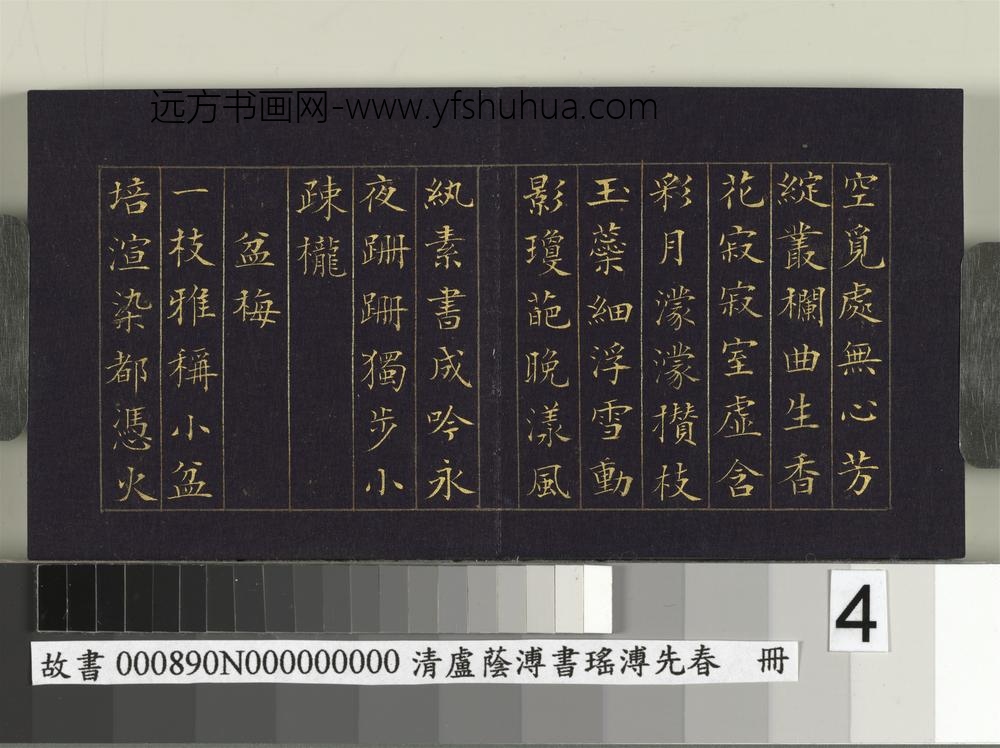 远方书画网-www.yfshuhua.com
空覓處無心芳
綻叢欄曲生香
花寂寂室虛含
彩月濛濛攢枝
玉蘂細浮雪動
影瓊葩晚漾風
紈素書成吟永
夜跚跚獨步小
疎櫳
盆梅
一枝雅稱小盆
培渲染都憑火
4
故書 000890N000000000 清盧蔭溥書瑤溥先春 冊